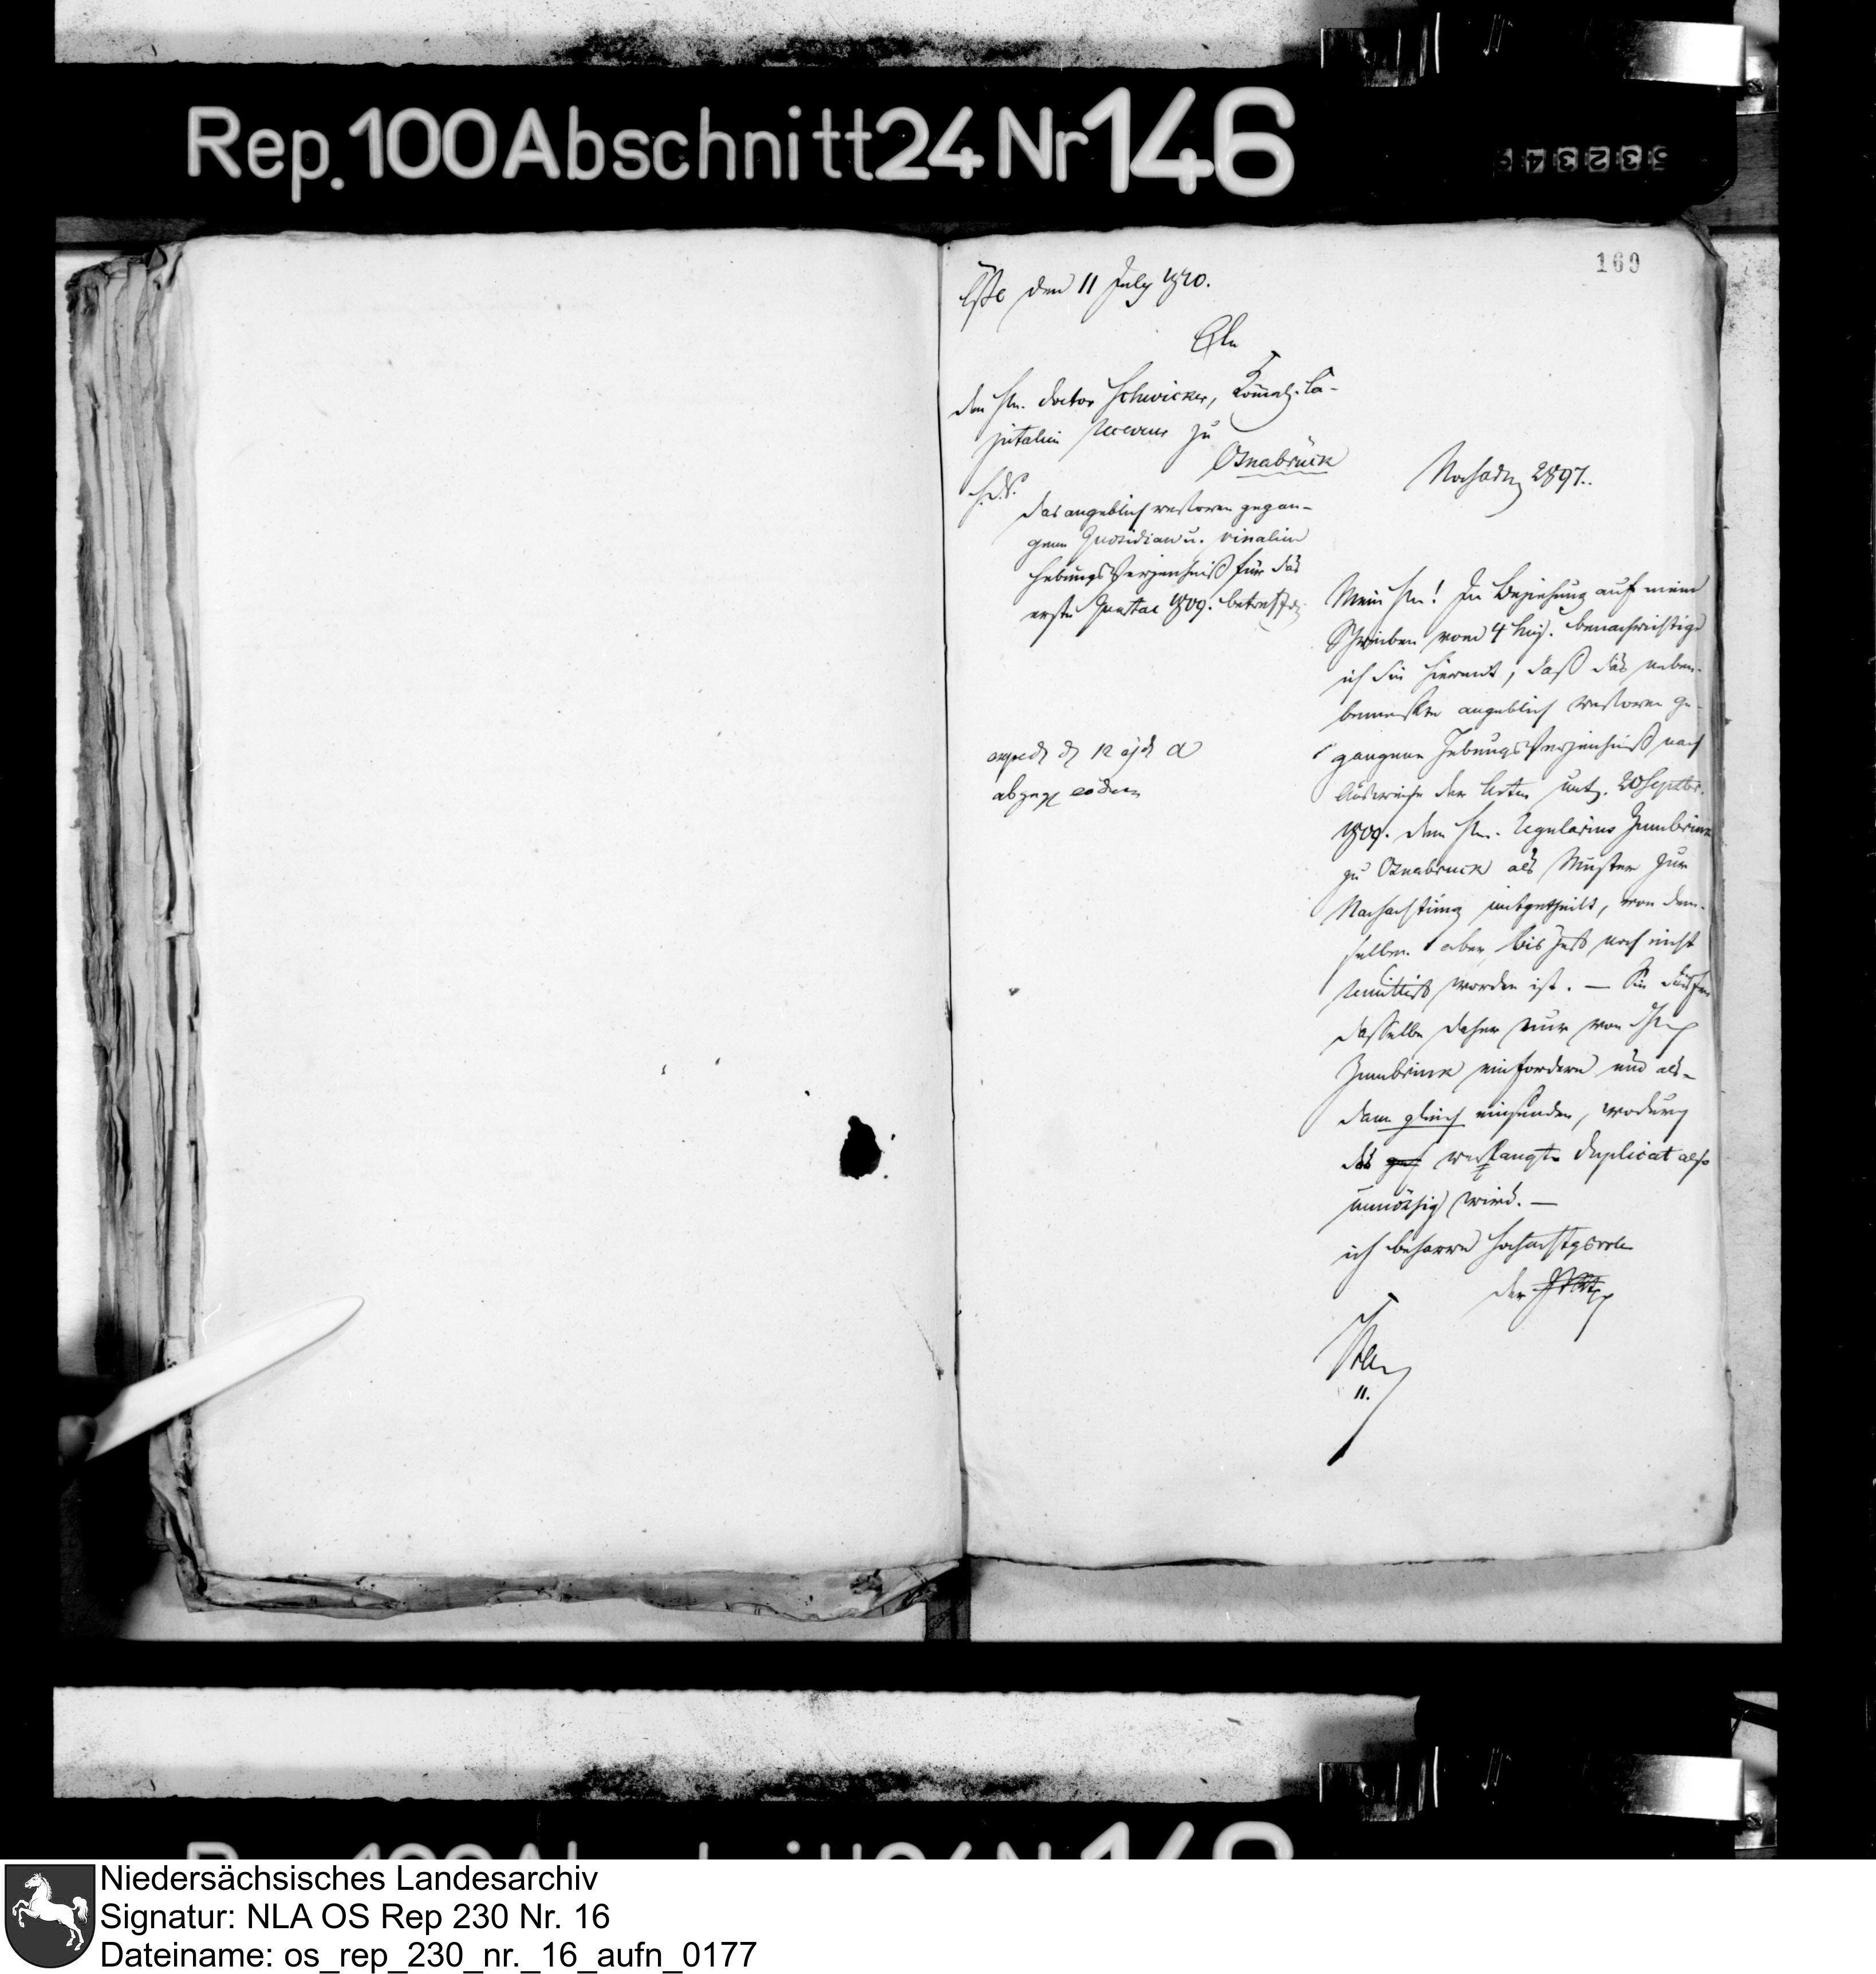 Rep.100Abschnitt24Nr146
532343
169
den 11 July 1810.
den Hn. Doctor Schwicker, Ca-
pitalien zu
Osnabrück
das angeblich verloren gegan-
gene Quotidian u. vinalien
Hebungs Verzeichniß für das
erste Quartal 1809. betreffd.
den 12
abgeg. eodem
Nachadn 2897.
Mein Hr! In Beziehung auf mein
Schreiben vom 4 huj. benachrichtige
ich Sie hiermit, daß das neben-
bemerkte angeblich verloren ge-
gangene Hebungs Verzeichniß nach
Ausweise der Acten unt. 20 Septbr.
1809. dem Hn. Regularius Zumbrink
zu Osnabruck als Muster zur
Nachachtung mitgetheilt, von dem-
selben aber bis jetzt noch nicht
remittirt worden ist. — Sie dürfen
dasselbe daher nur von
Zumbrink einfordern und als-
dann gleich einsenden, wodurch
das verlangte Duplicat also
unnöthig wird. —
ich beharre hochachtgsvoll
der
11.
Niedersächsisches Landesarchiv
Signatur: NLA OS Rep 230 Nr. 16
Dateiname: os_rep_230_nr._16_aufn_0177